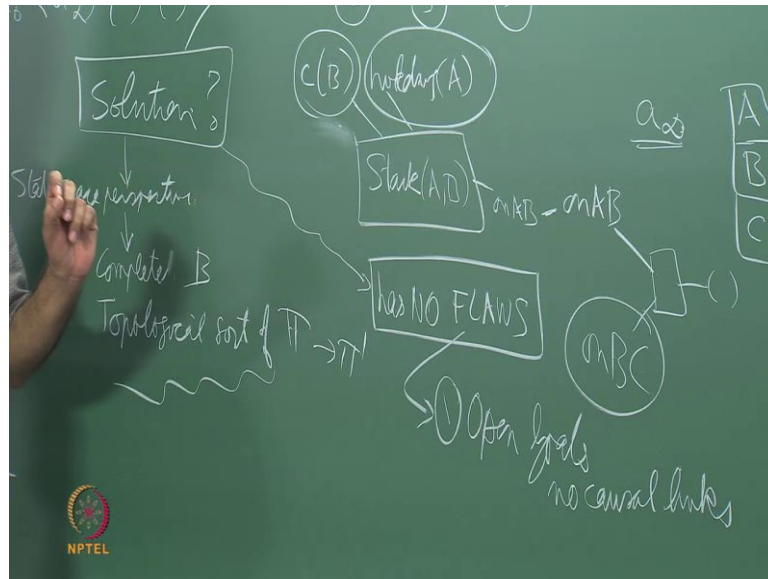 Solution ?
C(B)
holding(A)
Stack(A,B)
onAB - onAB
a∞
A
B
C
Completed B
Topological sort of π → π'
has NO FLAWS
onBC
( )
① Open goals
no causal links
NPTEL